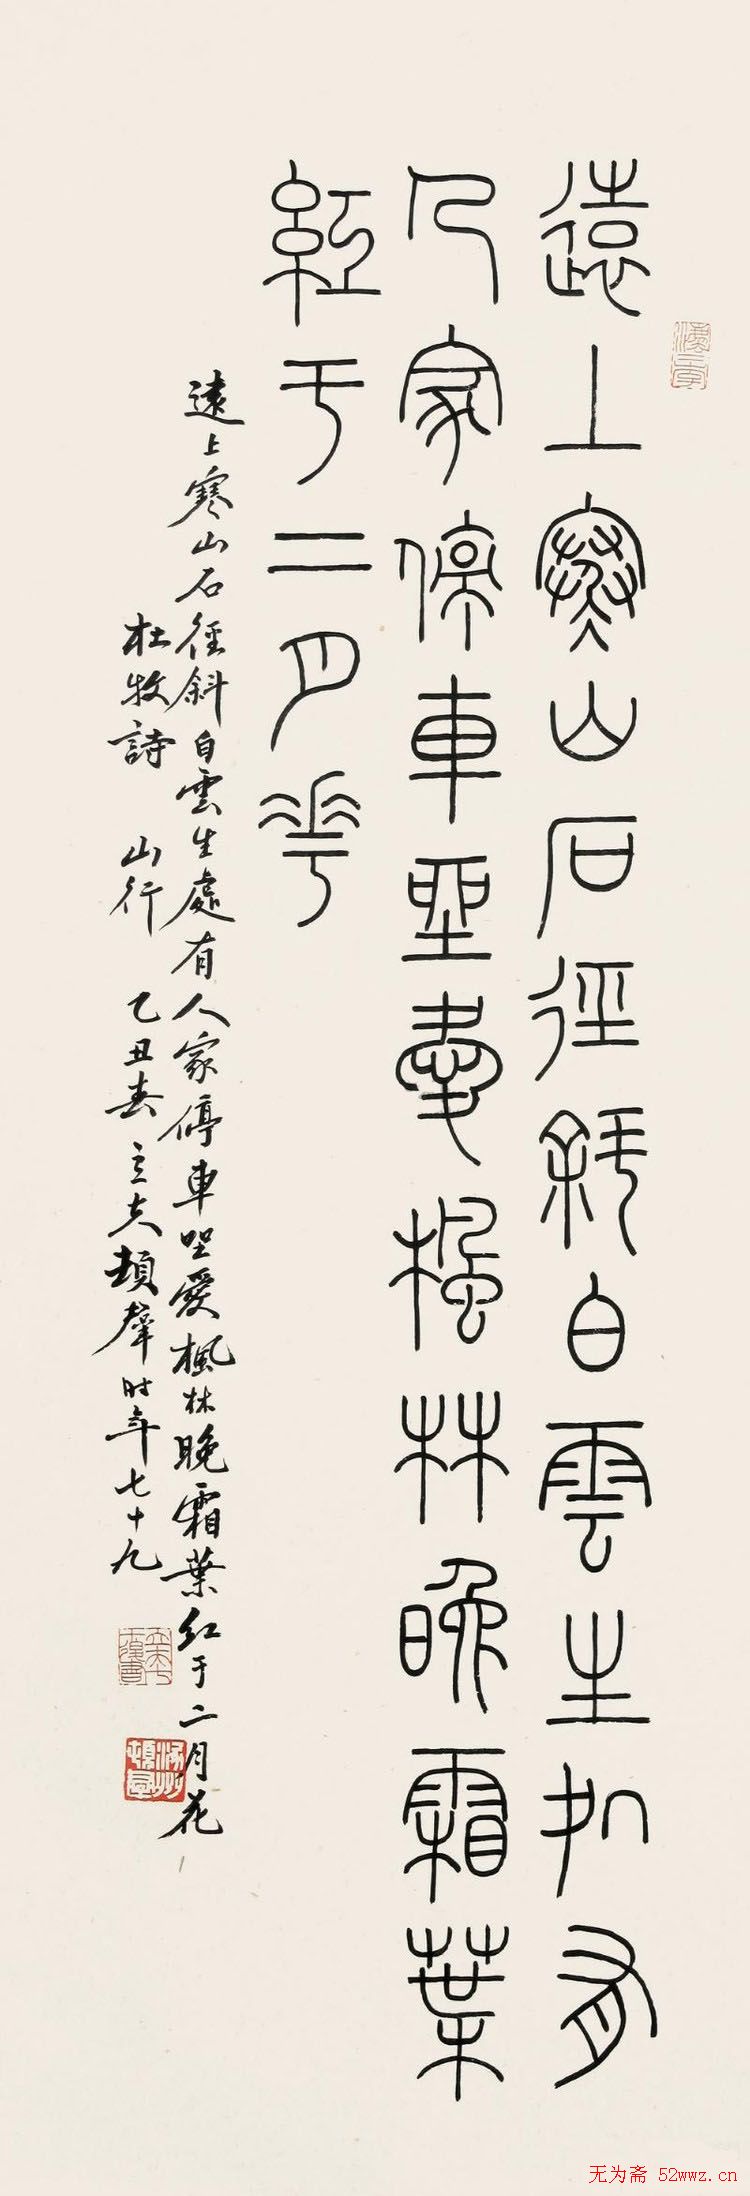 遠上寒山石徑斜白雲生処有
人家停車坐愛楓林晚霜葉
紅于二月花
遠上寒山石徑斜白雲生處有人家停車坐愛楓林晚霜葉红于二月花
杜牧詩 山行 乙丑春立夫頓羣时年七十九
无为斋 52wwz.cn